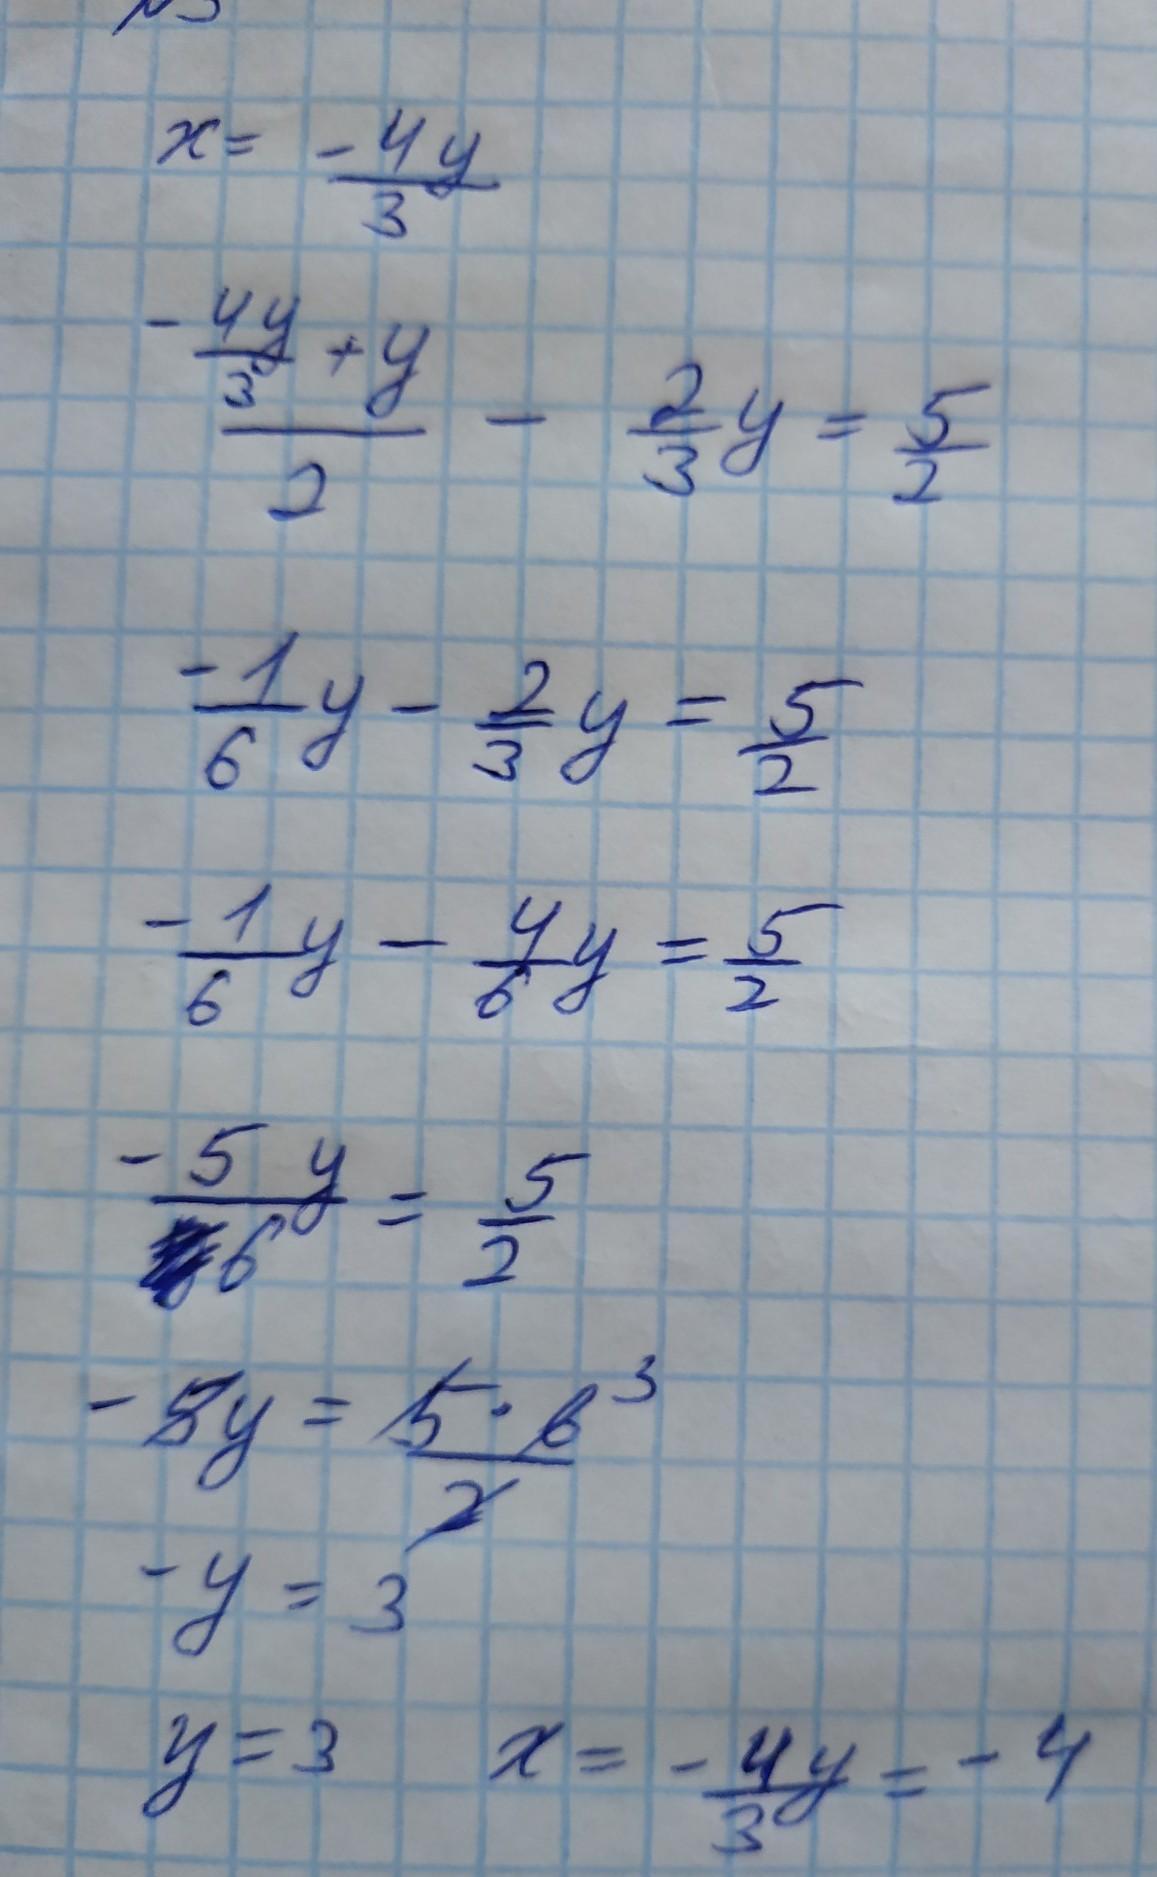 №3
x = -4y/3
(-4y/3 + y)/2 - 2/3 y = 5/2
-1/6 y - 2/3 y = 5/2
-1/6 y - 4/6 y = 5/2
-5y/6 = 5/2
-5y = 5·6 3/2
-y = 3
y = 3 x = -4y/3 = -4